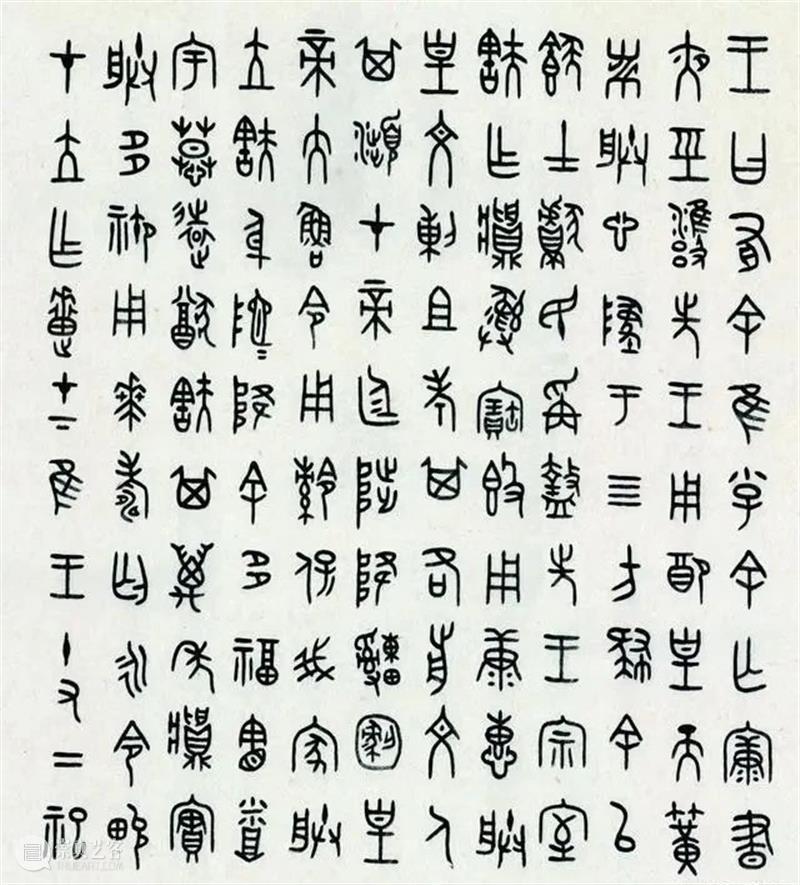 王曰有余隹小子余亡康晝
夜巠雝先王用配皇天簧
黹朕心墜于四方肄余以
𩛥士獻民爯盩先王宗室
㝬乍䵼彝寶簋用康惠朕
皇文剌且考其各前文人
其瀕才帝廷陟降申恪皇
帝大魯令用保我家朕
立㝬身阤=降余多福憲烝
宇慕遠猷㝬其萬年䵼實
朕多御用𠦪壽匄永令畯
才立乍疐才下隹王十又二祀
崇真艺客